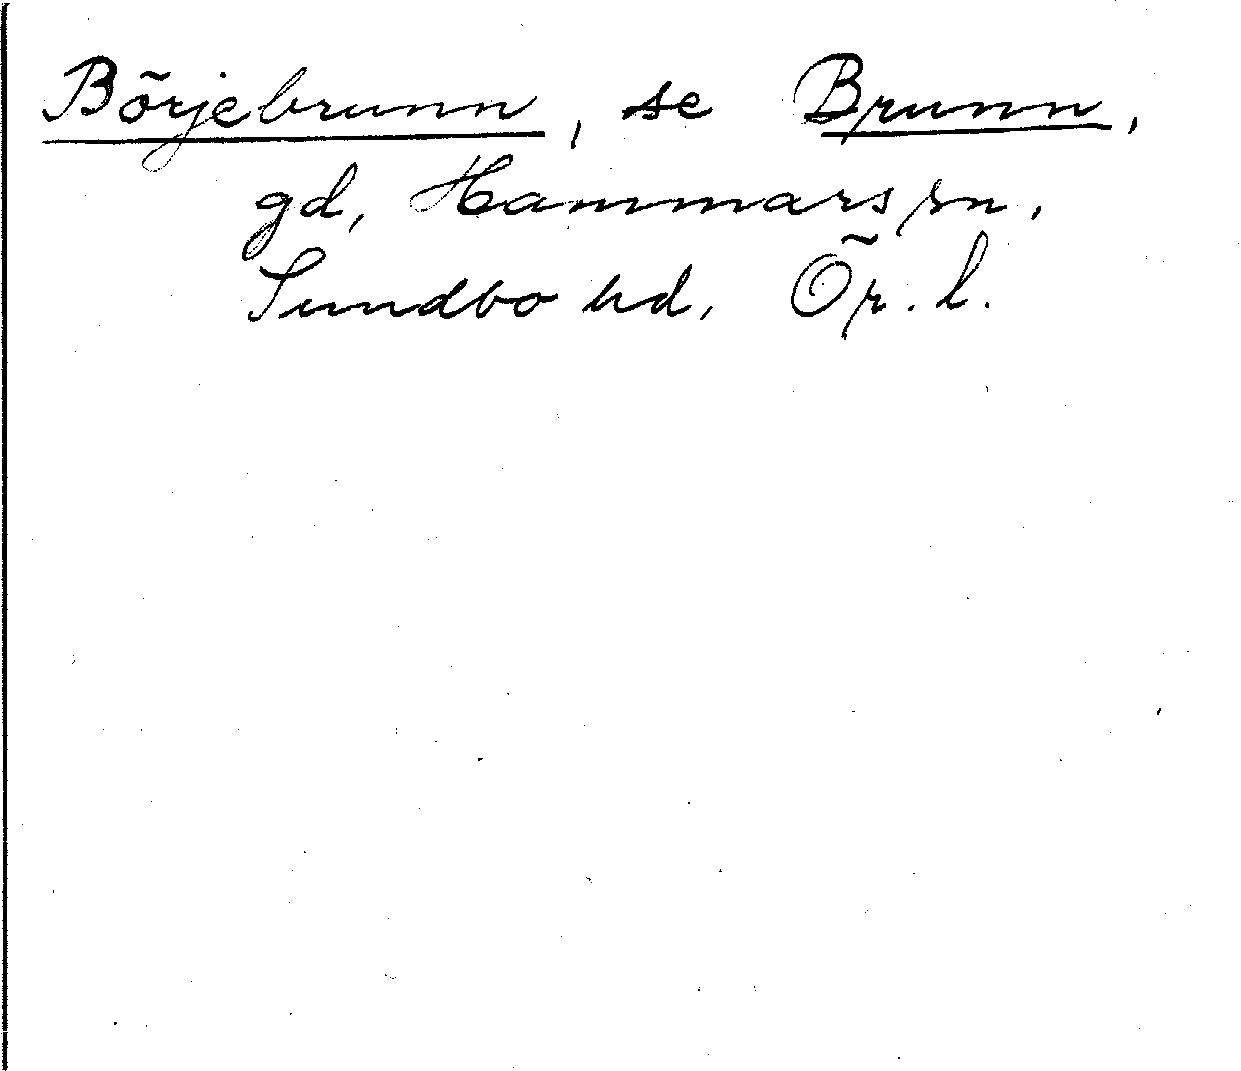 Börjebrunn, se Brunn,
gd, Hammars sn,
Sundbo hd, Ör. l.